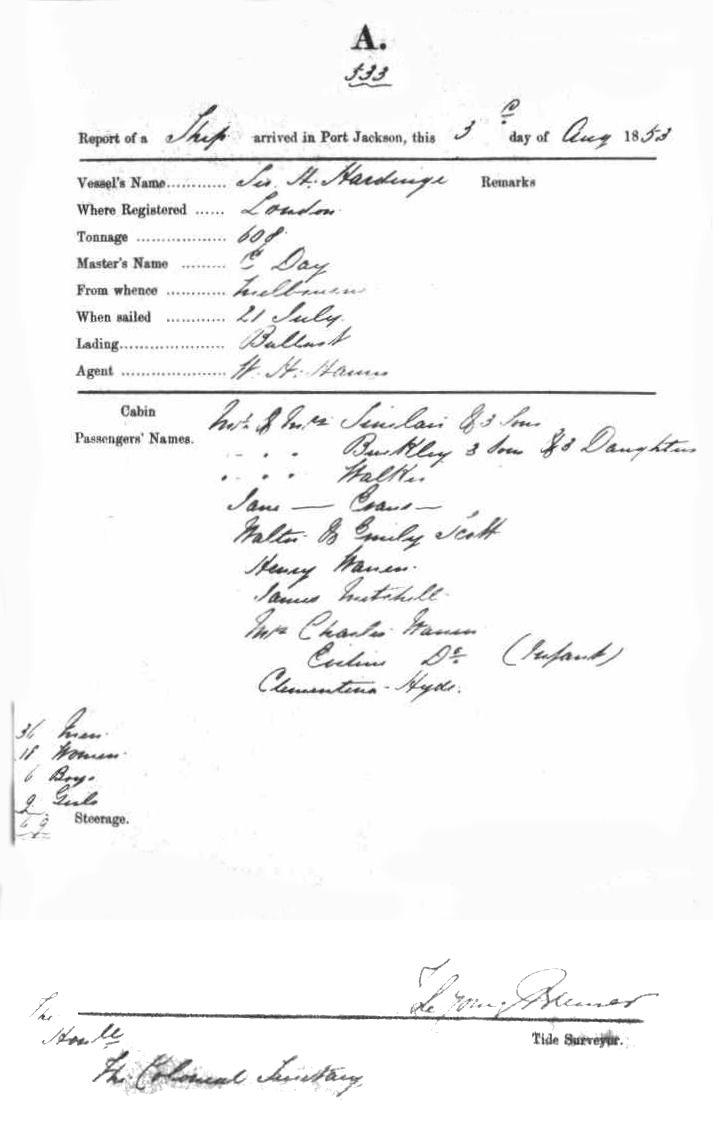 A.
533
Report of a Ship arrived in Port Jackson, this 3 d day of Aug 1853
Vessel's Name............ Sir H. Hardinge Remarks
Where Registered ...... London
Tonnage .................. 608
Master's Name ......... Day
From whence ............ Melbourne
When sailed ............ 21 July.
Lading..................... Ballast
Agent ..................... W. H.
Cabin
Passengers' Names.
Mr. & Mrs Sinclair & 3 Sons
" " " Buckley 3 Sons & 3 Daughters
" " " Walker
Jane — Evans —
Walter & Emily Scott
Henry Warren.
James Mitchell.
Mrs Charles Warren
Do. (Infant)
Clementina Hyde.
36 Men.
18 Women
6 Boys
9 Girls
69 Steerage.
The
Honble
The Colonial Secretary
Tide Surveyor.